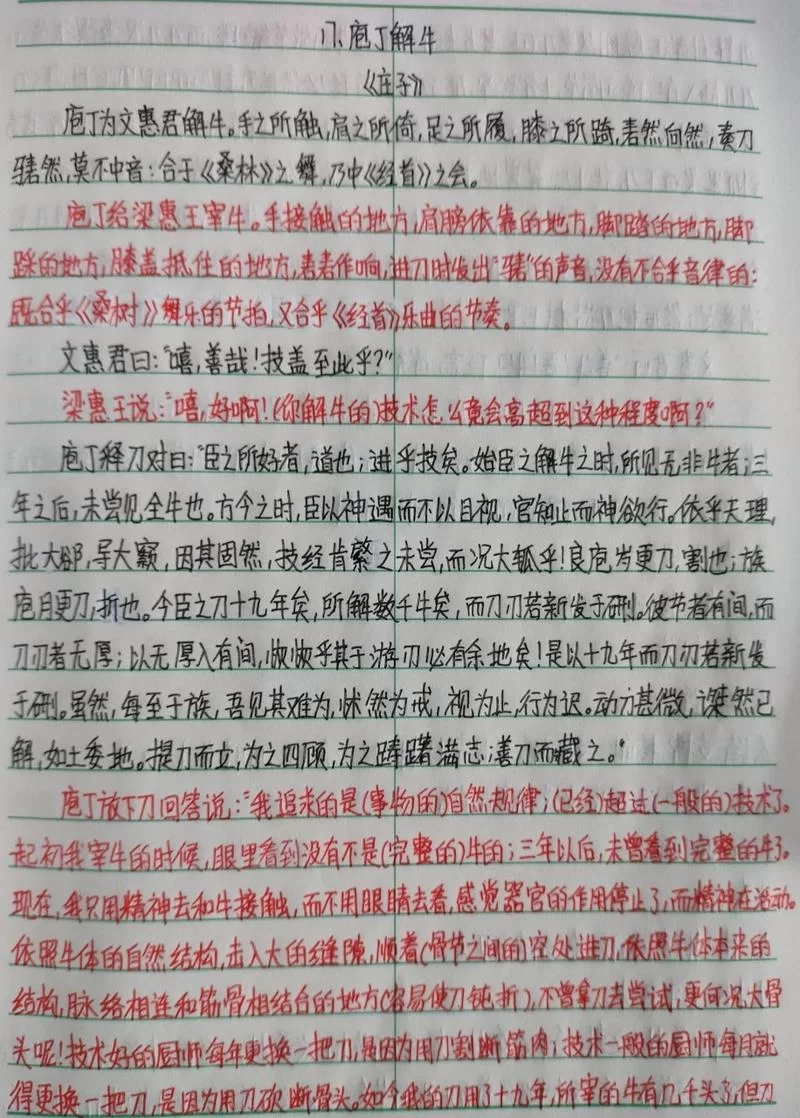 17、庖丁解牛
《庄子》
庖丁为文惠君解牛。手之所触,肩之所倚,足之所履,膝之所踦,砉然向然,奏刀
騞然,莫不中音:合于《桑林》之舞,乃中《经首》之会。
庖丁给梁惠王宰牛。手接触的地方,肩膀依靠的地方,脚踏的地方,脚
踩的地方,膝盖抵住的地方,砉砉作响,进刀时发出“騞”的声音,没有不合乎音律的:
既合乎《桑树》舞乐的节拍,又合乎《经首》乐曲的节奏。
文惠君曰:“嘻,善哉!技盖至此乎?”
梁惠王说:“嘻,好啊!(你解牛的)技术怎么竟会高超到这种程度啊?”
庖丁释刀对曰:“臣之所好者,道也;进乎技矣。始臣之解牛之时,所见无非牛者;三
年之后,未尝见全牛也。方今之时,臣以神遇而不以目视,官知止而神欲行。依乎天理,
批大郤,导大窾,因其固然,技经肯綮之未尝,而况大軱乎!良庖岁更刀,割也;族
庖月更刀,折也。今臣之刀十九年矣,所解数千牛矣,而刀刃若新发于硎。彼节者有间,而
刀刃者无厚;以无厚入有间,恢恢乎其于游刃必有余地矣!是以十九年而刀刃若新发
于硎。虽然,每至于族,吾见其难为,怵然为戒,视为止,行为迟。动刀甚微,謋然已
解,如土委地。提刀而立,为之四顾,为之踌躇满志;善刀而藏之。”
庖丁放下刀回答说:“我追求的是(事物的)自然规律;(已经)超过(一般的)技术了。
起初我宰牛的时候,眼里看到没有不是(完整的)牛的;三年以后,未曾看到完整的牛了。
现在,我只用精神去和牛接触,而不用眼睛去看,感觉器官的作用停止了,而精神在活动。
依照牛体的自然结构,击入大的缝隙,顺着(骨节之间的)空处进刀,依照牛体本来的
结构,脉络相连和筋骨相结合的地方(容易使刀钝折),不曾拿刀去尝试,更何况大骨
头呢!技术好的厨师每年更换一把刀,是因为用刀割断筋肉;技术一般的厨师每月就
得更换一把刀,是因为用刀砍断骨头。如今我的刀用了十九年,所宰的牛有几千头了,但刀